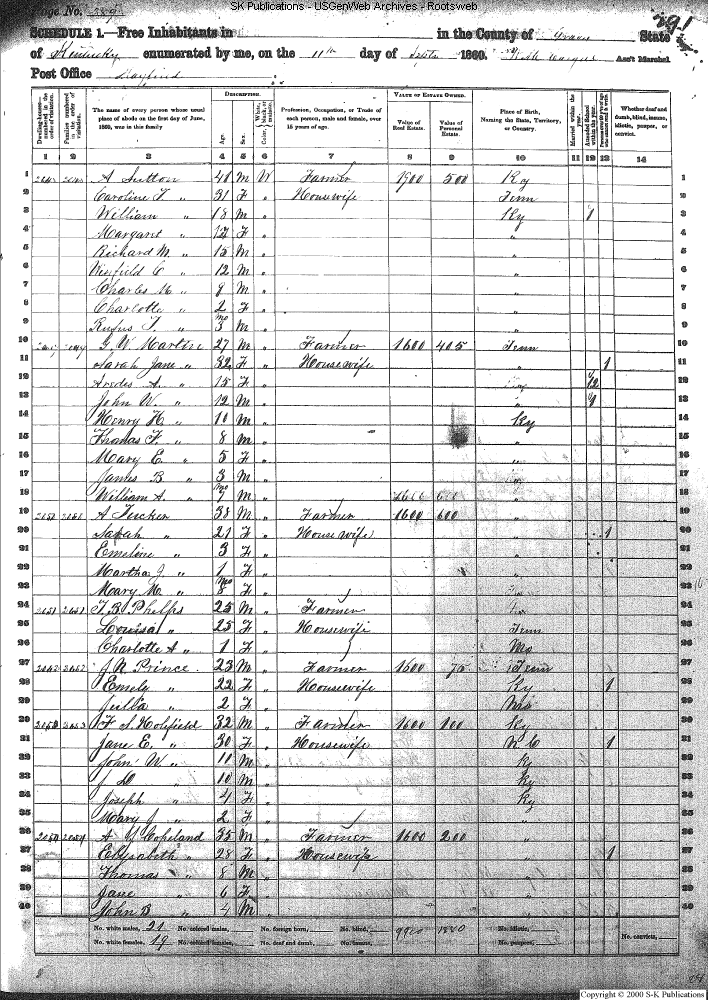 SK Publications - USGenWeb Archives - Rootsweb
Page No. 291
SCHEDULE 1.—Free Inhabitants in in the County of Graves State
of Kentucky enumerated by me, on the 11th day of Septr 1860. Ass't Marshal
Post Office Mayfield
Dwelling-houses—numbered in the order of visitation.
Families numbered in the order of visitation.
The name of every person whose usual place of abode on the first day of June, 1860, was in this family
DESCRIPTION.
Age.
Sex.
Color, White, black, or mulatto.
Profession, Occupation, or Trade of each person, male and female, over 15 years of age.
VALUE OF ESTATE OWNED.
Value of Real Estate.
Value of Personal Estate.
Place of Birth, Naming the State, Territory, or Country.
Married within the year.
Attended School within the year.
Whether deaf and dumb, blind, insane, idiotic, pauper, or convict.
1 2 3 4 5 6 7 8 9 10 11 12 13 14
1 A Sutton 40 M W Farmer 1900 500 Ky 1
2 Caroline T " 31 F " Housewife Tenn 2
3 William " 18 M " Ky 1 3
4 Margaret " 17 F " " 4
5 Richard M. " 15 M " " 5
6 Winfield C " 12 M " " 6
7 Charles " 8 M " " 7
8 Charlotte " 2 F " " 8
9 Rufus T. " 3 mo M " " 9
10 G W Martine 27 M " Farmer 1600 405 Tenn 10
11 Sarah Jane " 32 F " Housewife " 1 11
12 A. " 15 F " 12
13 John W. " 12 M " " 13
14 Henry H. " 10 M " Ky 14
15 Thomas F. " 8 M " " 15
16 Mary E. " 5 F " " 16
17 James B " 3 M " 17
18 William A. " 7 mo M " " 18
19 A Tucker 38 M " Farmer 1600 600 " 19
20 Sarah " 21 F " Housewife " 1 20
21 Emeline " 3 F " " 21
22 Martha J " 1 F " " 22
23 Mary M " 8 mo F " 23
24 T. B Phelps 25 M " Farmer 24
25 Louisa " 25 F " Housewife Tenn 25
26 Charlotte A " 1 F " Mo 26
27 J. N Prince 23 M " Farmer 1600 75 Tenn 27
28 Emely " 22 F " Housewife Ky 1 28
29 Julia " 2 F " Mo 29
30 F S Holifield 32 M " Farmer 1600 100 Ky 30
31 Jane E. " 30 F " Housewife N C 1 31
32 John W " 11 M " Ky 32
33 J " 10 M " Ky 33
34 Joseph " 4 F " Ky 34
35 Mary J " 2 F " 35
36 A Y Copeland 35 M " Farmer 1600 200 " 36
37 Elysabeth " 28 F " Housewife " 1 37
38 Thomas " 8 M " " 38
39 Jane " 6 F " " 39
40 John B " 4 M " " 40
No. white males, 21 No. colored males, No. foreign born, No. blind, No. idiotic, No. convicts,
No. white females, 19 No. colored females, No. deaf and dumb, No. insane, No. paupers,
Copyright © 2000 S-K Publications